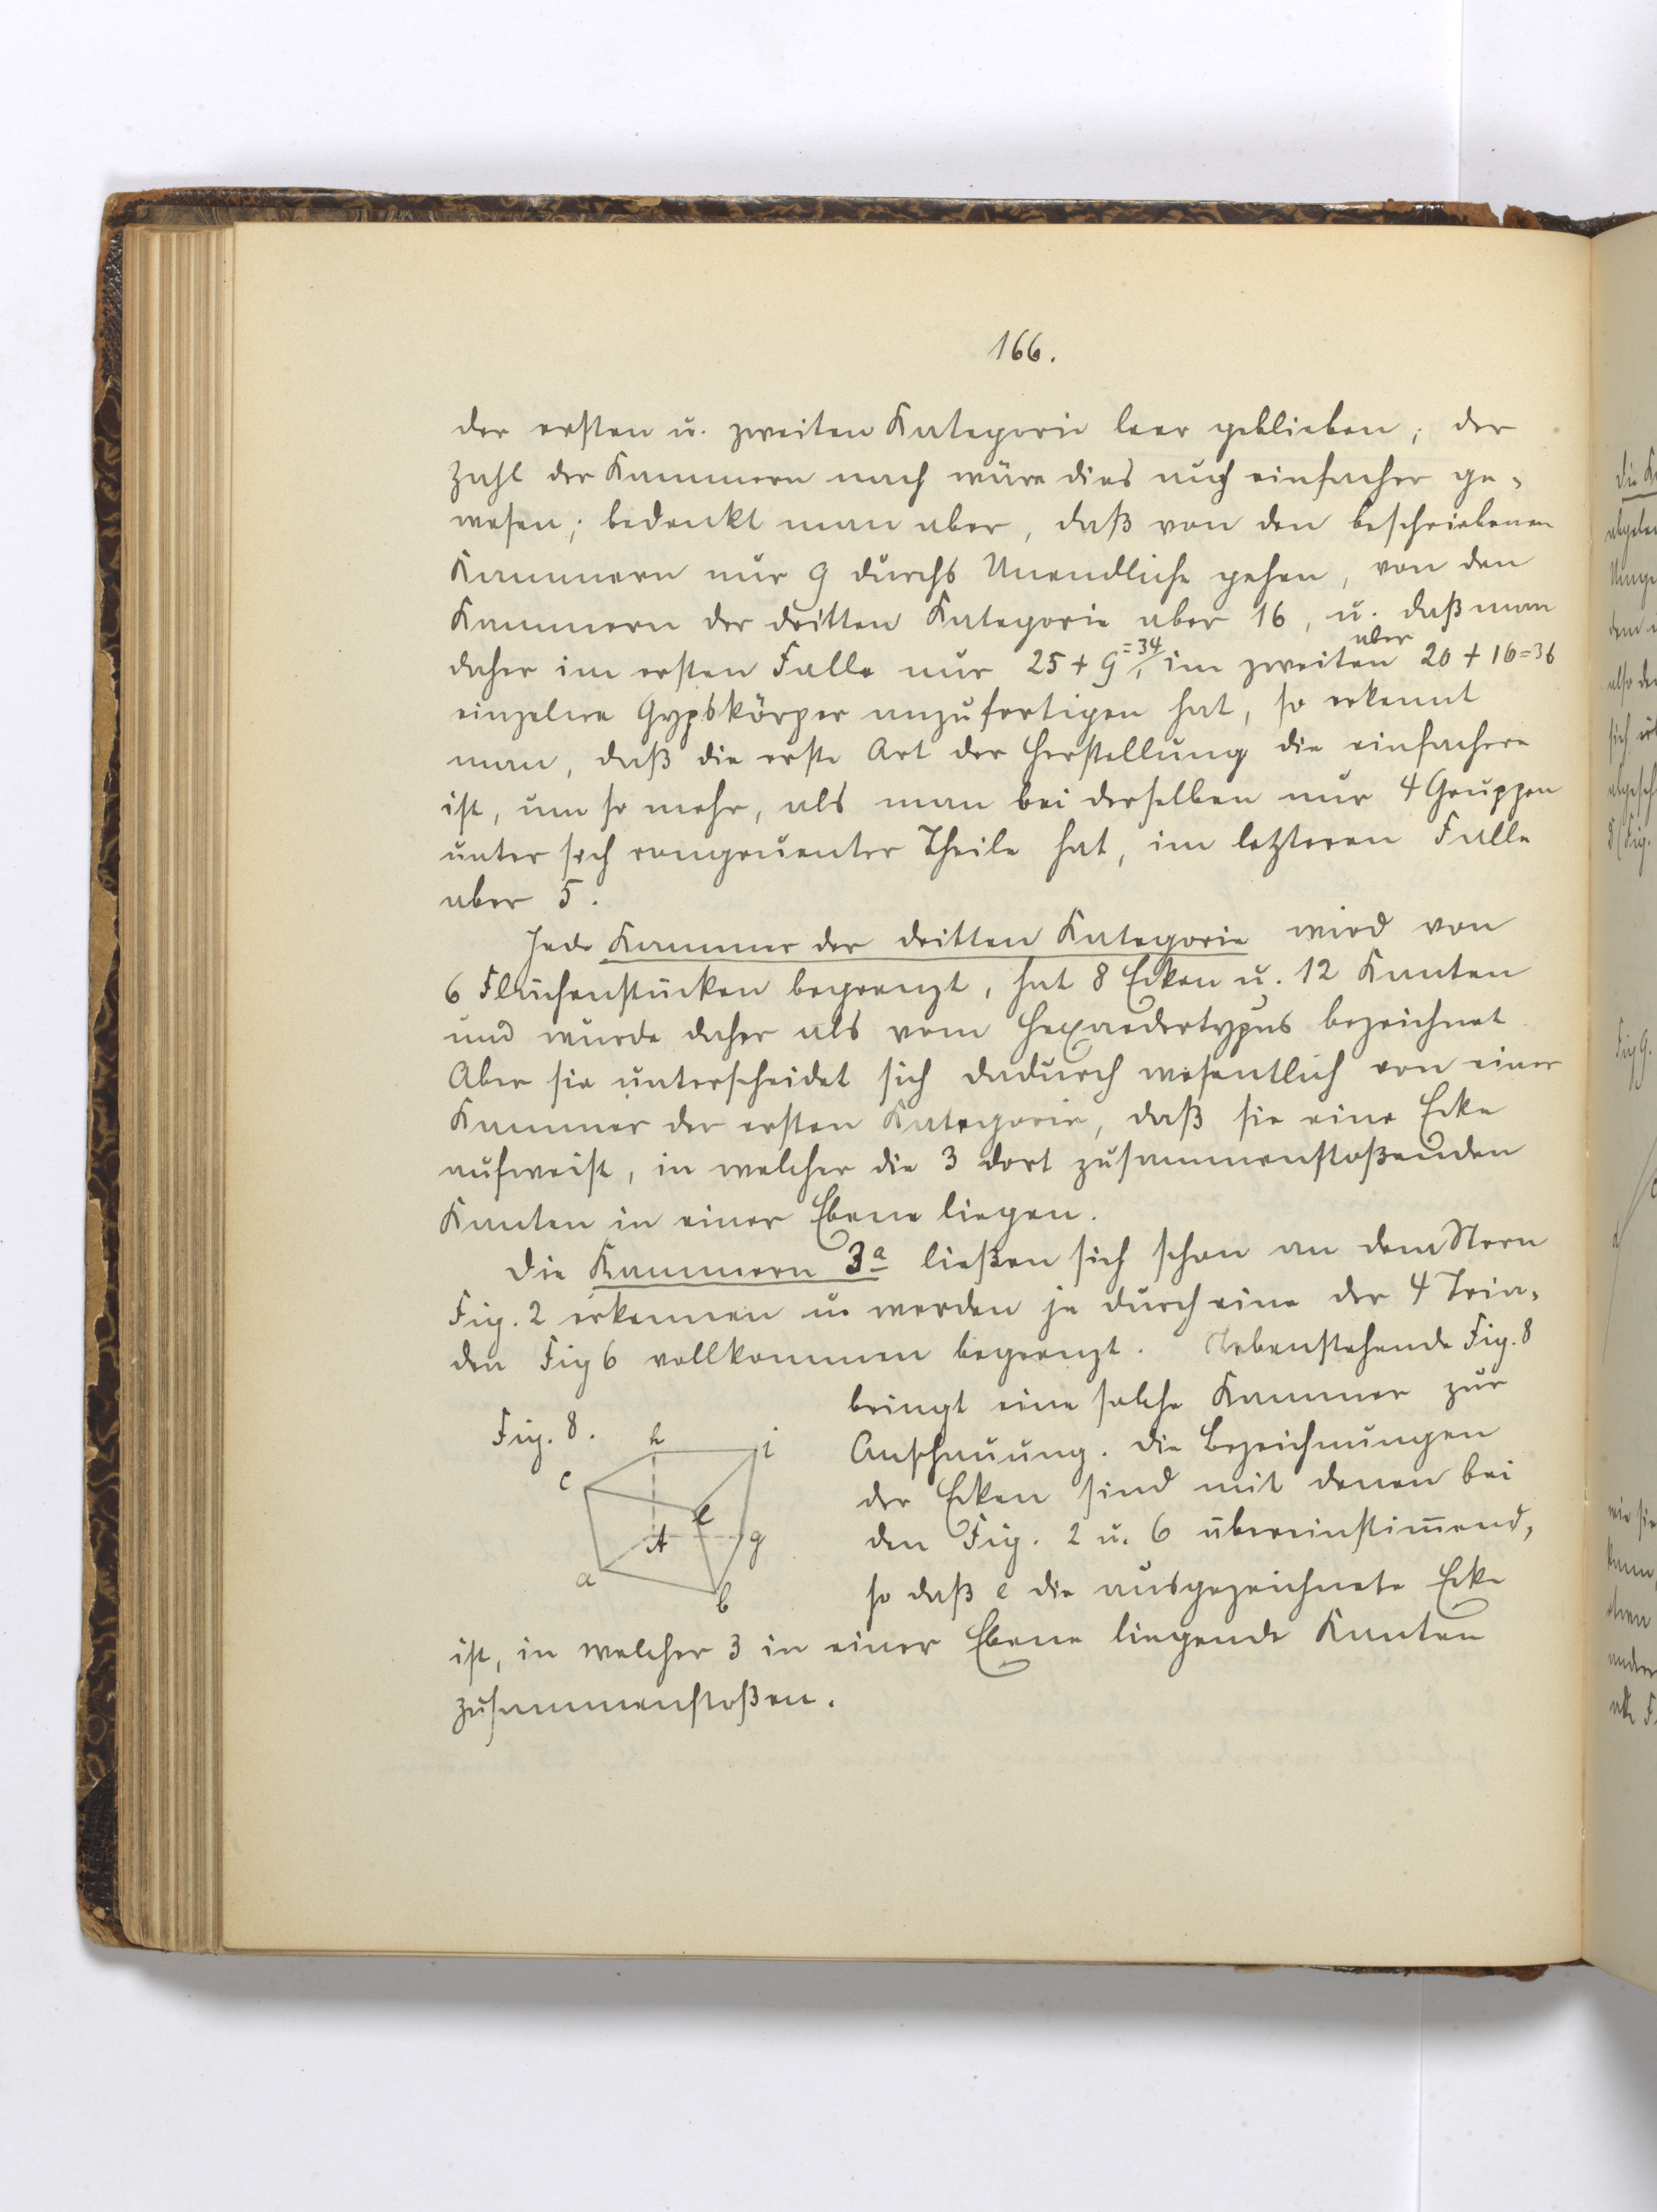 166.
der ersten u. zweiten Kategorie leer geblieben; der
Zahl der Kammern nach wäre dies auch einfacher ge-
wesen; bedenkt man aber, daß von den beschriebenen
Kammern nur 9 durchs Unendliche gehen, von den
Kammern der dritten Kategorie aber 16, u. daß man
daher im ersten Falle nur 25 + 9 = 34, im zweiten aber 20 + 16 = 36
einzelne Gypskörper anzufertigen hat, so erkennt
man, daß die erste Art der Herstellung die einfachere
ist, um so mehr, als man bei derselben nur 4 Gruppen
unter sich congruenter Theile hat, im letzteren Falle
aber 5.
Jede Kammer der dritten Kategorie wird von
6 Flächenstücken begrenzt, hat 8 Ecken u. 12 Kanten
und wurde daher als vom Hexaedertypus bezeichnet
Aber sie unterscheidet sich dadurch wesentlich von einer
Kammer der ersten Kategorie, daß sie eine Ecke
aufweist, in welcher die 3 dort zusammenstoßenden
Kanten in einer Ebene liegen.
Die Kammern 3a ließen sich schon an dem Stern
Fig. 2 erkennen u. werden je durch eine der 4 Tria-
den Fig 6 vollkommen begrenzt. Nebenstehende Fig. 8
bringt eine solche Kammer zur
Anschauung. Die Bezeichnungen
der Ecken sind mit denen bei
den Fig. 2 u. 6 übereinstim̄end,
so daß e die ausgezeichnete Ecke
ist, in welcher 3 in einer Ebene liegende Kanten
zusammenstoßen.
Fig. 8.
h
i
c
e
A
g
a
b